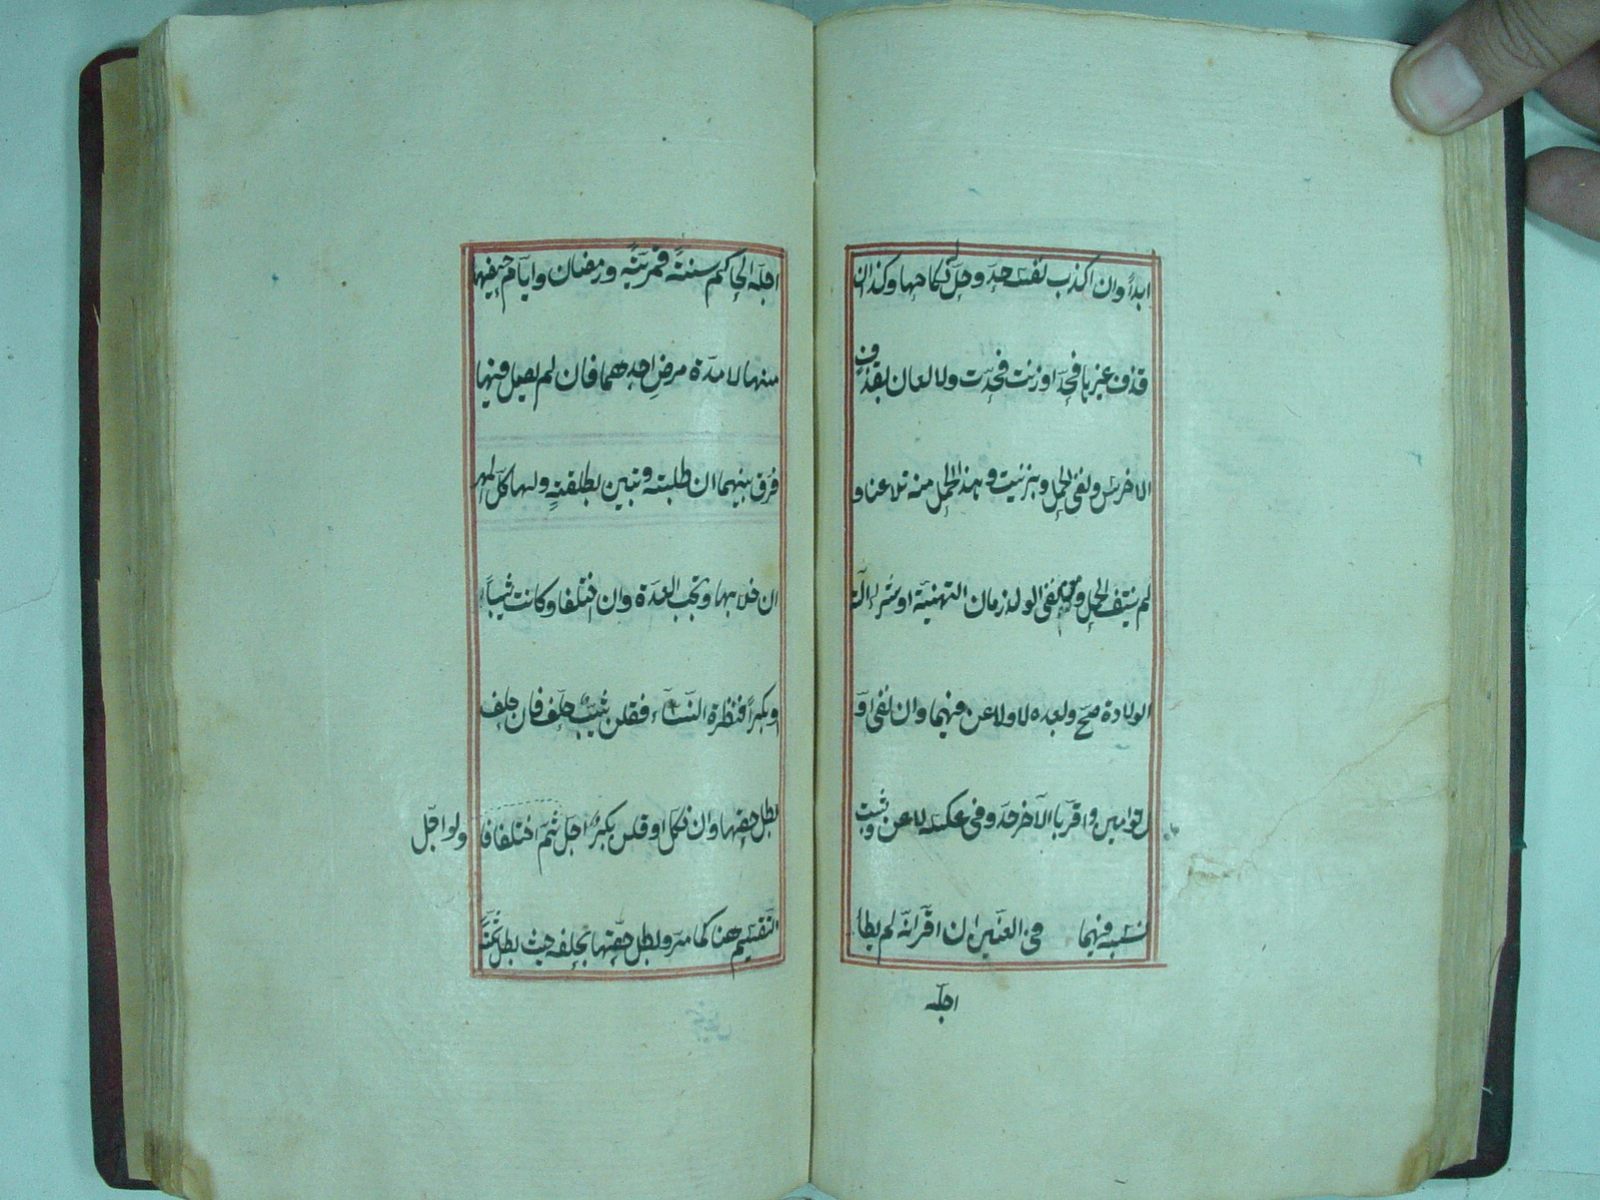 ابدا وان اكذب نفسه حد وحل نكاحها وكذا ان
قذف غيرها فحد او زنت فحدت ولا لعان بقذف
الاخرس ونفى الحمل وبزنيت وهذا الحمل منه تلاعنا و
لم ينتف الحمل ونفى الولد زمان التهنية او شراء الة
الولادة صح وبعده لا ولاعن فيهما وان نفى او
ل توامين واقر بالآخر حد وفى عكسه لاعن وثبت
نسبه فيهما فى العنين ان اقر انه لم يطأ
اجله
اجله الحاكم سنة قمرية ورمضان وايام حيضها
منها لا مدة مرض احدهما فان لم يصل فيها
فرق بينهما ان طلبته وتبين بطلقة ولها كل المهر
ان خلا بها وتجب العدة وان اختلفا وكانت ثيبا
او بكرا فنظرت النساء فقلن ثيب حلف فان حلف
بطل حقها وان نكل او قلن بكر اجل ثم اختلفا فا ولو اجل
لتقسيم هنا كما مر وبطل حقها بحلفه حيث بطل ثمة